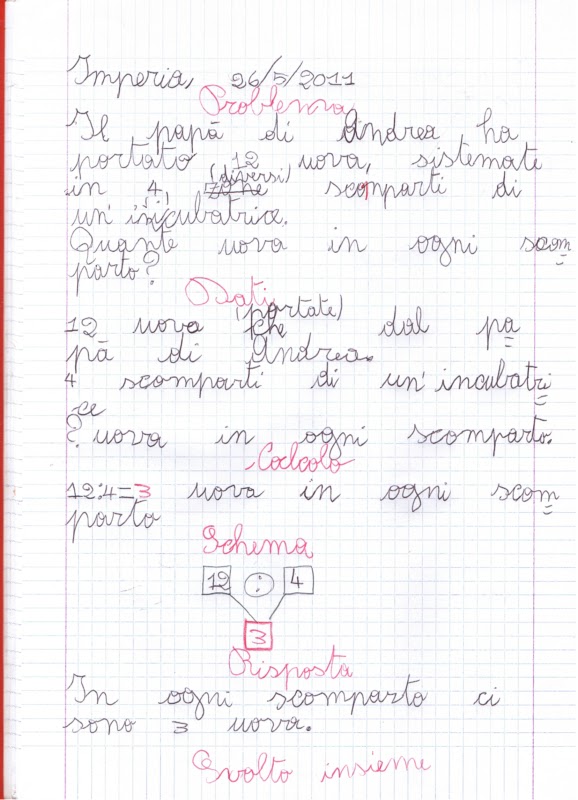 Imperia, 26/5/2011
Problema
Il papà di Andrea ha
portato 12 uova, sistemate
(diversi)
in 4, zone scomparti di
un'incubatrice.
Quante uova in ogni scom
parto?
Dati
(portate)
12 uova che dal pa
pà di Andrea.
4 scomparti di un'incubatri
ce
? uova in ogni scomparto.
Calcolo
12:4=3 uova in ogni scom
parto
Schema
12 : 4
3
Risposta
In ogni scomparto ci
sono 3 uova.
Svolto insieme